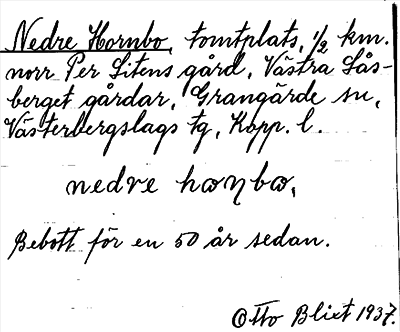 Nedre Hornbo, tomtplats, ½ km.
norr Per Litens gård, Västra Lås-
berget gårdar, Grangärde sn,
Västerbergslags tg, Kopp. l.
nedre hɷꞃbɷ,
Bebott för en 50 år sedan.
Otto Blixt 1937.